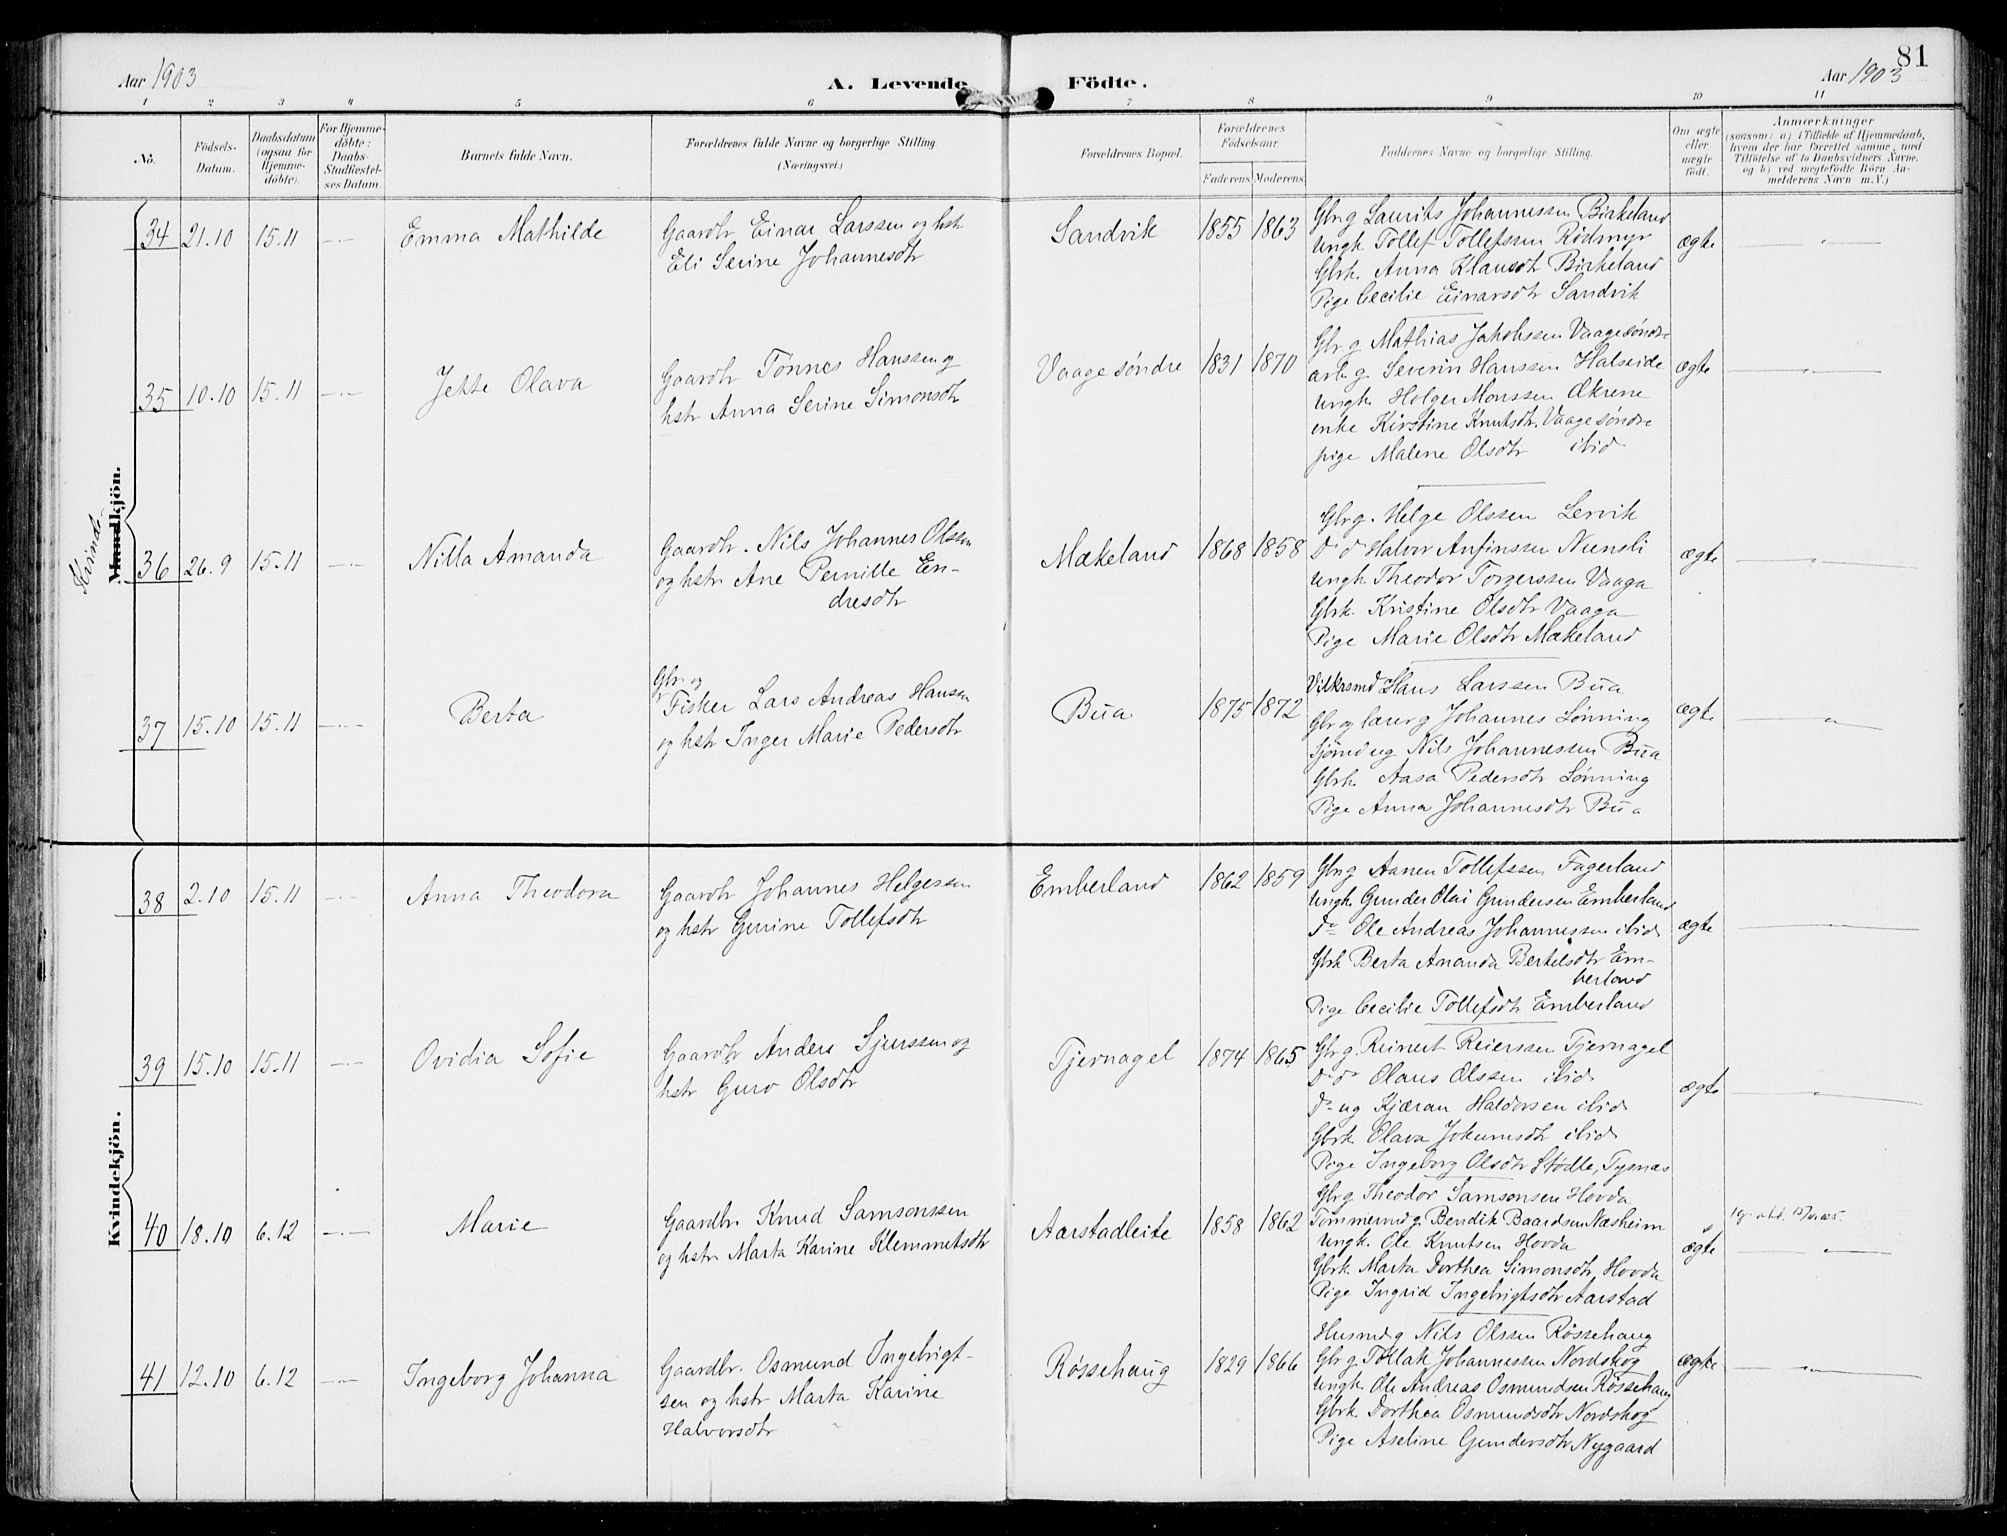 81
Aar 1903
A. Levende Födte.
Aar 1903
1 2 3 4 5 6 7 8 9 10 11
No.
Födsels-Datum.
Daabsdatum (ogsaa for Hjemme-döbte).
For Hjemme-döbte: Daabs-Stadfæstel-ses Datum.
Barnets fulde Navn.
Forældrenes fulde Navne og borgerlige Stilling (Næringsvei.)
Forældrenes Bopæl.
Forældrenes Födselsaar.
Faderens Moderens
Faddernes Navne og borgerlige Stilling.
Om ægte eller uægte födt.
Anmærkninger
(saasom: a) i Tilfælde af Hjemmedaab,
hvem der har forrettet samme, med
Tilföielse af to Daabsvidners Navne,
og b) ved uægtefödte Börn An-
melderens Navn m.V.)
Kvinde
Mandkjön.
34 21.10 15.11 Emma Mathilde
Gaardbr Einar Larssen og hst
Eli Serine Johannesdtr
Sandvik 1855 1863
Gbrg Laurits Johannessen Birkeland
Ungk Tollef Tollefssen Rødmyr
Gbrk. Anna Klausdtr Birkeland
Pige Cecilie Einarsdtr Sandvik
ægte
35 10.10 15.11 Jette Olava
Gaardbr Tønnes Hanssen og
hstr Anna Serine Simonsdtr
Vaage søndre 1831 1870
Gbr g Mathias Jakobssen Vaage søndre
arb g. Severin Hanssen Halseide
ungk Holger Monssen Økrene
enke Kirstine Knutsdtr. Vaage søndre
pige Malene Olsdtr ibid
ægte
36 26.9 15.11 Nilla Amanda
Gaardbr. Nils Johannes Olssen
og hstr Ane Pernille En-
dresdtr
Mækeland 1868 1858
Gbrg. Helge Olssen Lervik
do do Halvor Anfinssen Nuensli
ungk Theodor Torgerssen Vaaga
Gbrk. Kristine Olsdtr Vaaga
Pige Marie Olsdtr Mækeland
ægte
37 15.10 15.11 Berta
Gbr og
Fisker Lars Andreas Hansen
og hstr Inger Marie Pedersdtr
Bua 1875 1872
Vilkrsmd Hans Larssen Bua
Gbr og lærer g Johannes Lønning
Sjømd ug Nils Johannessen Bua
Gbrk Aasa Pedersdtr Lønning
Pige Anna Johannesdtr Bua
ægte
Kvindekjön.
38 2.10 15.11 Anna Theodora
Gaardbr Johannes Helgessen
og hstr Gurine Tollefsdtr
Emberland 1862 1859
Gbrg Aanen Tollefssen Fagerland
Ungk Gunder Olai Gundersen Emberland
do Ole Andreas Johannessen ibid
Gbrk Berta Amanda Bertelsdtr Em-
berland
Pige Cecilie Tollefsdtr Emberland
ægte
39 15.10 15.11 Ovidia Sofie
Gaardbr Anders Sjurssen og
hstr Guro Olsdtr
Tjernagel 1874 1865
Gbr g. Reinert Reierssen Tjernagel
do do Olaus Olssen ibid
do ug Kjæran Haldorsen ibid
Gbrk Olava Johannesdtr ibid
Pige Ingeborg Olsdtr Stødle, Tysnæs
ægte
40 18.10 6.12 Marie
Gaardbr. Knud Samsonssen
og hstr Marta Karine Klemmetsdtr
Aarstadleite 1858 1862
Gbrg Theodor Samsonsen Hovda
Tømmermd g. Bendik Baardsen Næsheim
Ungk. Ole Knutsen Hovda
Gbrk Marta Dorthea Simonsdtr Hovda
Pige Ingrid Ingebrigtsdtr Aarstad
ægte
41 12.10 6.12 Ingeborg Johanna
Gaardbr. Osmund Ingebrigt-
sen og hstr Marta Karine
Halvorsdtr
Røssehaug 1829 1866
Husmd g Nils Olssen Røssehaug
Gbr g. Tollak Johannessen Nordskog
Ungk. Ole Andreas Osmundsen Røssehaug
Gbrk Dorthea Osmundsdtr Nordskog
Pige Aseline Gundersdtr Nygaard
ægte